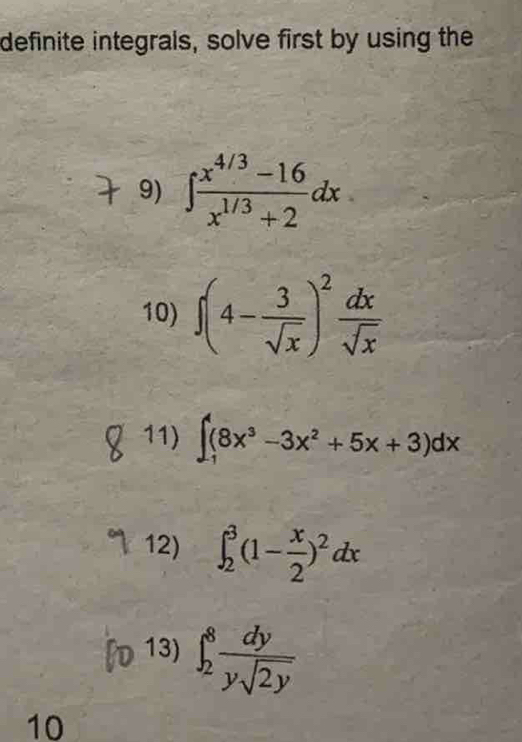 definite integrals, solve first by using the
7 9) ∫ (x^{4/3} − 16)/(x^{1/3} + 2) dx
10) ∫ (4 − 3/√x)² dx/√x
8 11) ∫ (8x³ − 3x² + 5x + 3)dx
9 12) ∫₂³ (1 − x/2)² dx
10 13) ∫₂⁸ dy/(y√(2y))
10